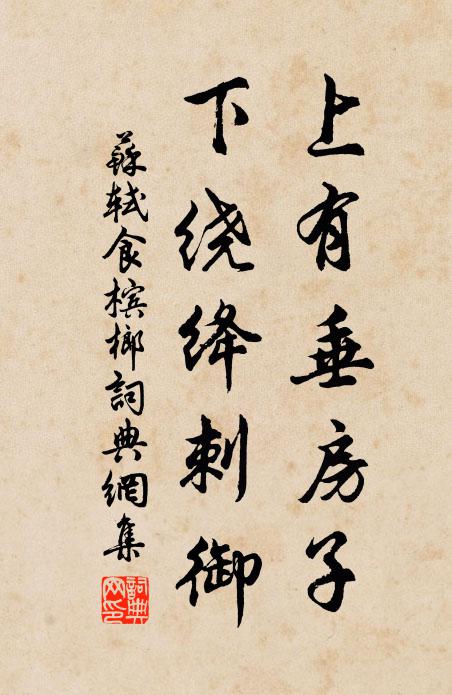 上有垂房子
下绕绛刺御
蘇轼食槟榔詞典網集
詞典网印